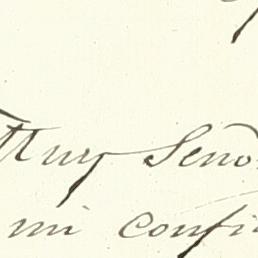 Muy Seño
mi confi